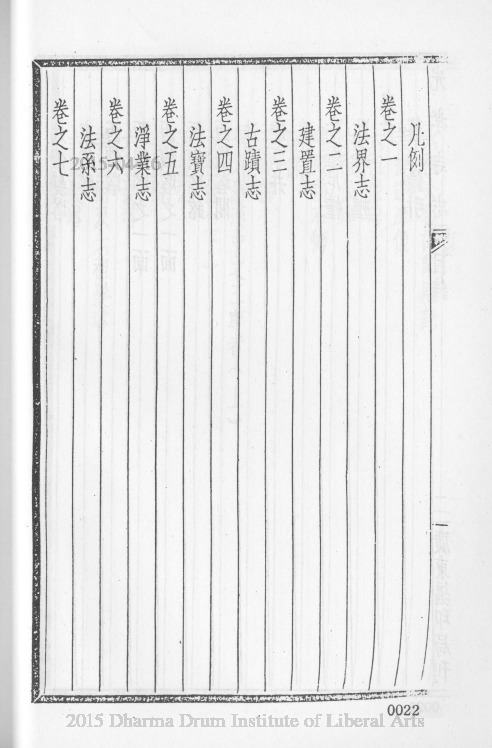 凡例
卷之一
法界志
卷之二
建置志
卷之三
古蹟志
卷之四
法寶志
卷之五
淨業志
卷之六
法系志
卷之七
0022
2015 Dharma Drum Institute of Liberal Arts